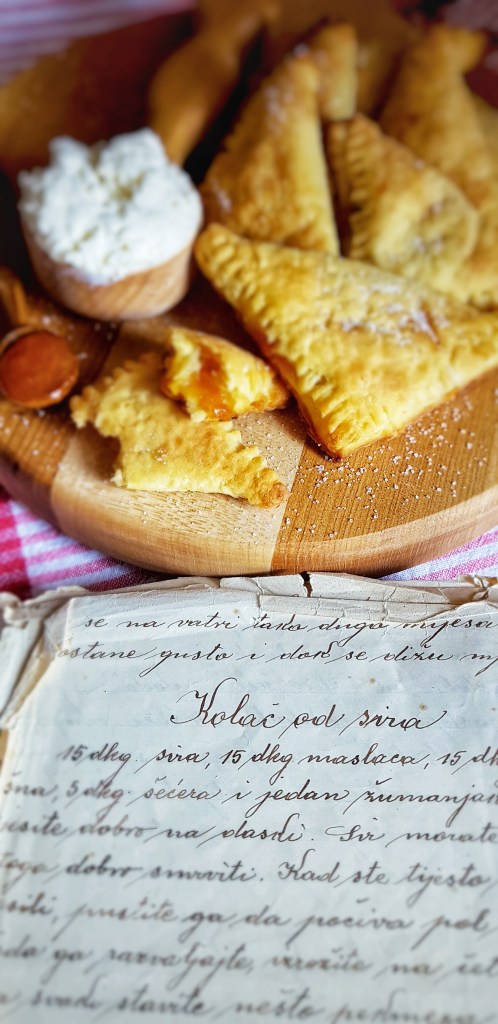 se na vatri tako dugo mijesa
ostane gusto i dok se dižu
Kolač od sira
15 dkg. sira, 15 dkg maslaca, 15 dk
šna, 5 dkg. šećera i jedan žumanja
dobro na dasci. Sir morate
toga dobro smrviti. Kad ste tijesto
sili, pustite ga da počiva pol
da ga razvaljajte, izrežite na čet
svaki stavite nešto pekmeza